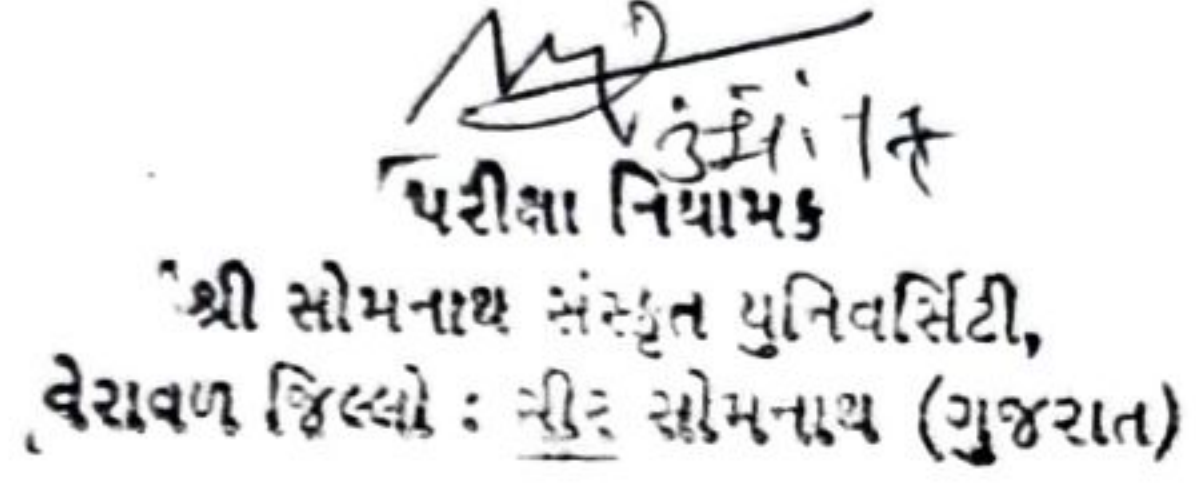 પરીક્ષા નિયામક
શ્રી સોમનાથ સંસ્કૃત યુનિવર્સિટી,
વેરાવળ જિલ્લો : ગીર સોમનાથ (ગુજરાત)